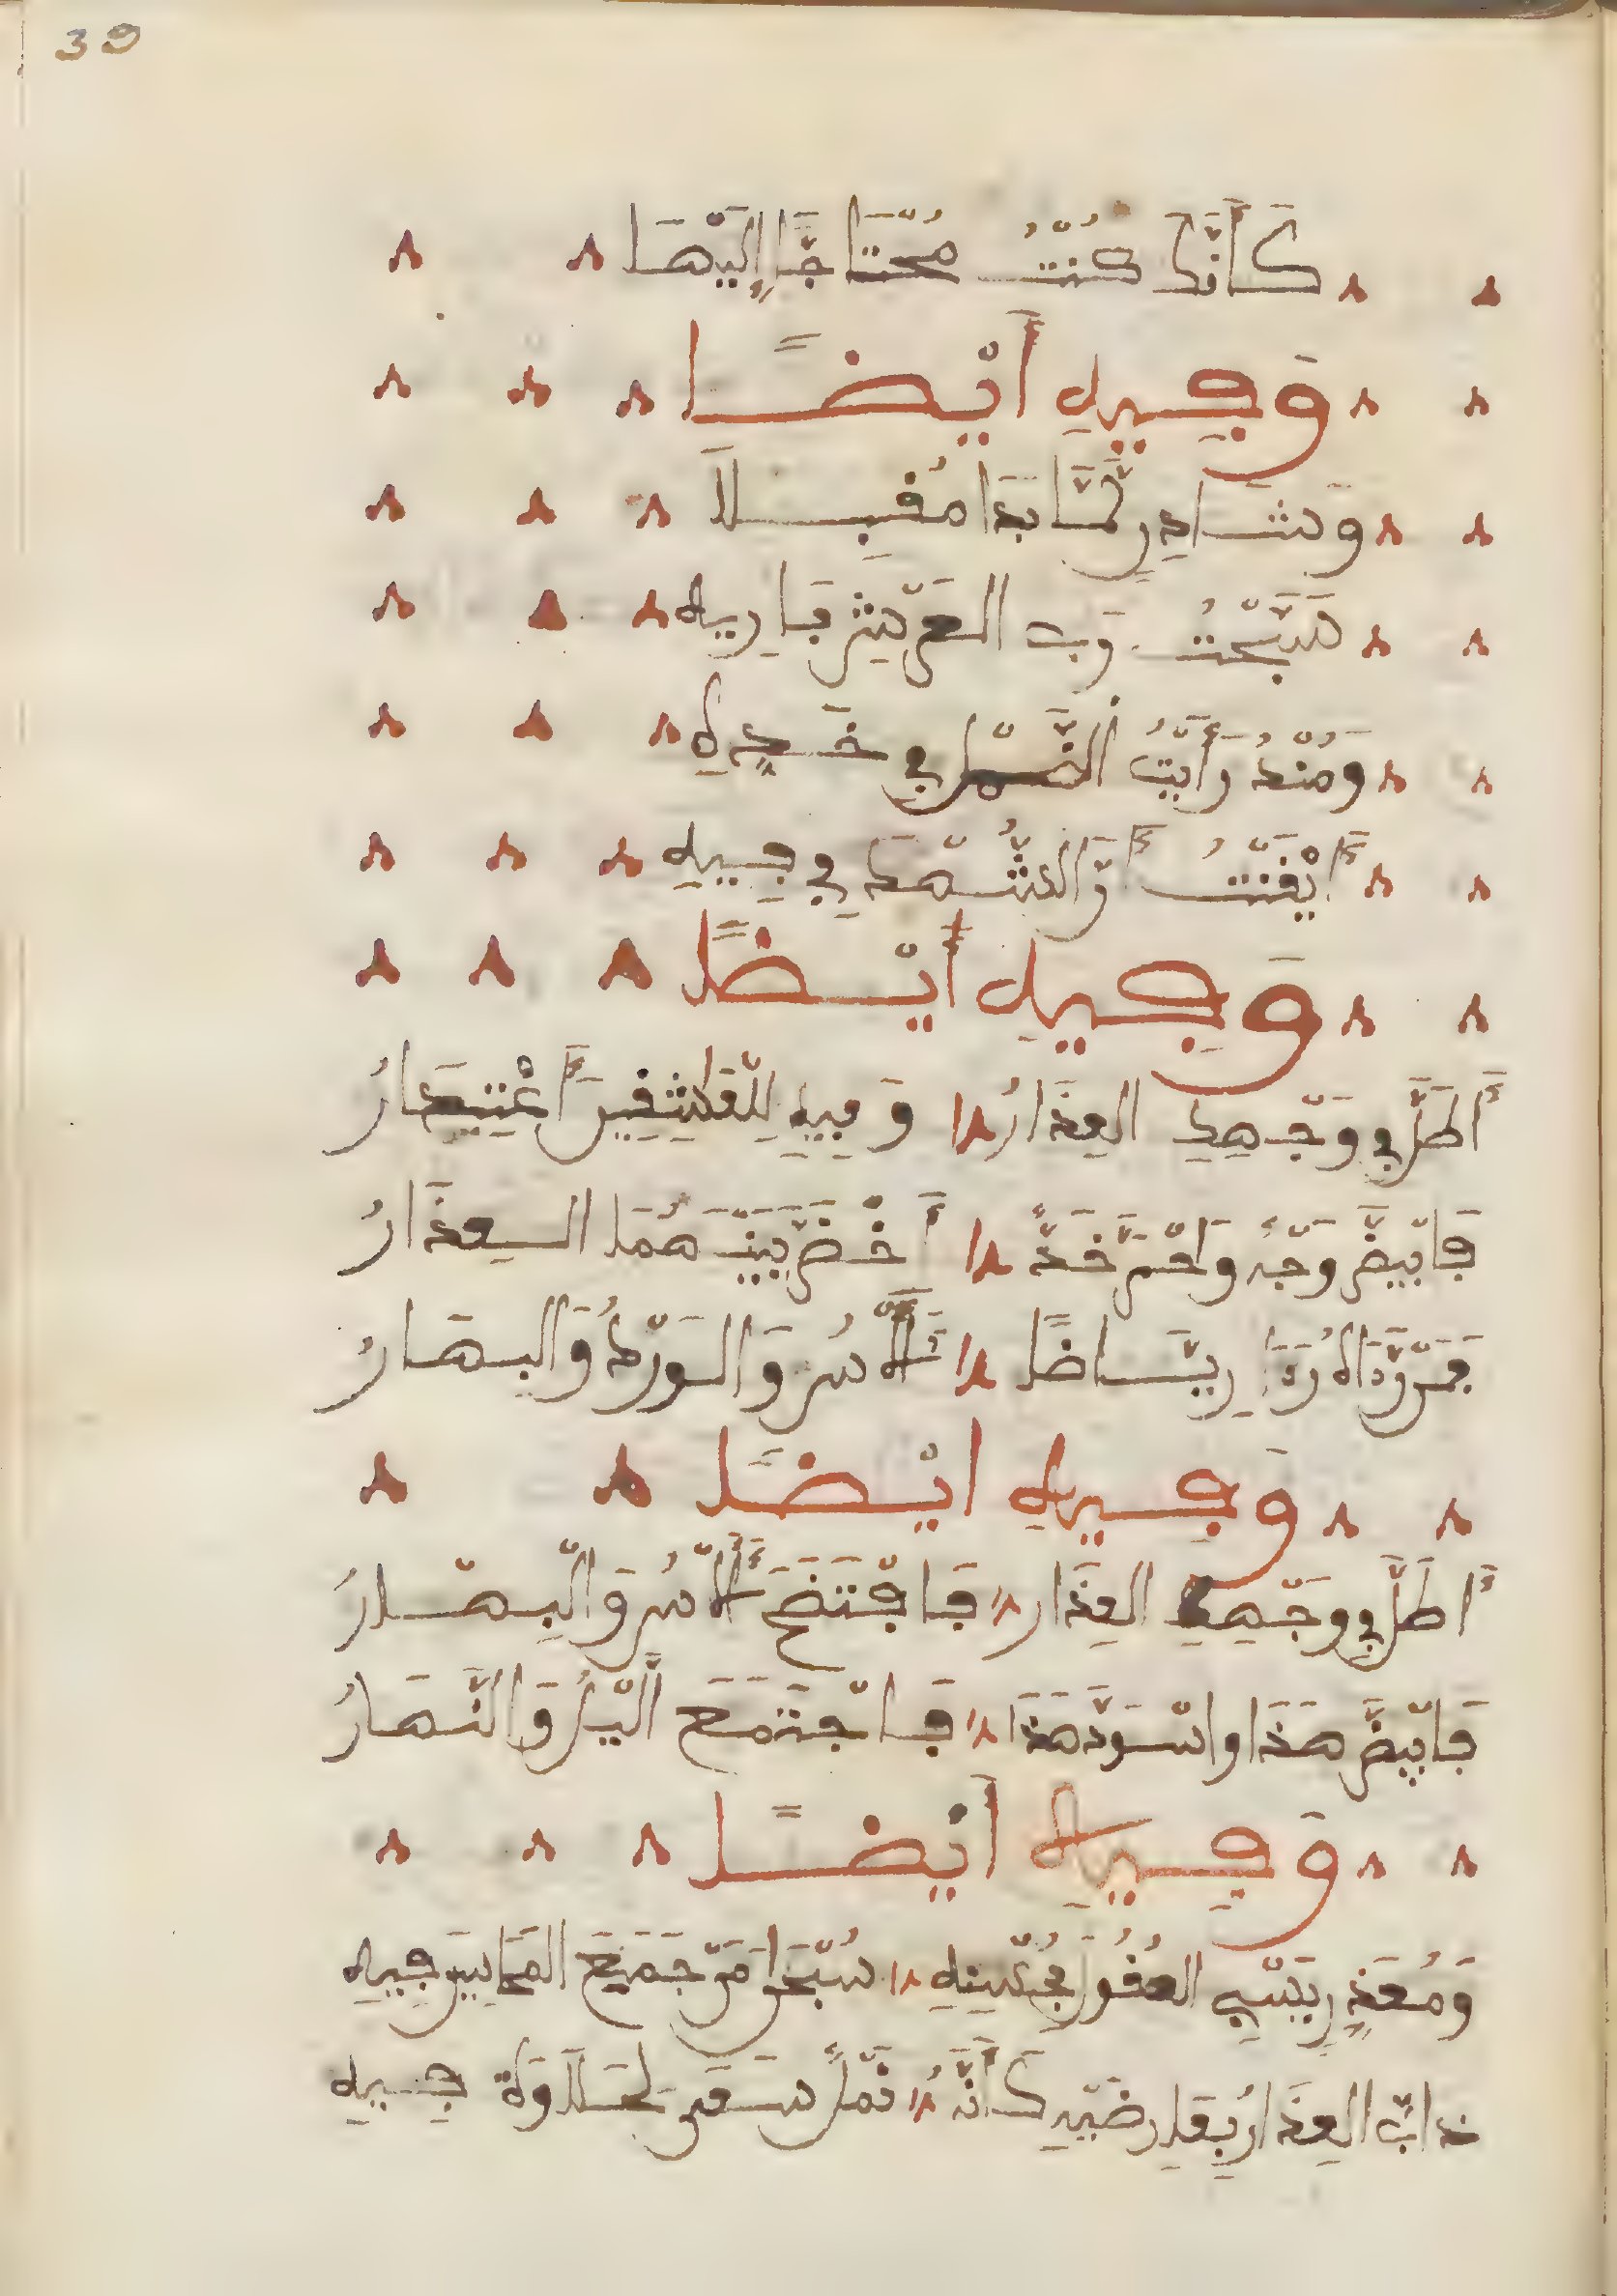 39
كَأَنَّكَ كُنْتَ مُحْتَاجًا إِلَيْهَا
وَفِيهِ أَيْضًا
وَشَادِنٍ لَمَّا بَدَا مُقْبِلاَ
سَبَّحْتُ رَبَّ الْعَرْشِ بَارِيهِ
وَمُنْذُ رَأَيْتُ النَّمْلَ فِي خَدِّهِ
أَيْقَنْتُ أَنَّ الشُّهْدَ فِي فِيهِ
وَفِيهِ أَيْضًا
أَطَلَّ فِي وَجْهِهِ العِذَارُ وَفِيهِ لِلْعَاشِقِينَ اعْتِذَارُ
فَابْيَضَّ وَجْهٌ وَاحْمَرَّ خَدٌّ أَخْضَرُّ بَيْنَهُمَا العِذَارُ
رِيَاضًا الْآسُ وَالْوَرْدُ وَالْبَهَارُ
وَفِيهِ ايْضًا
أَطَلَّ فِي وَجْهِهِ العِذَار فَافْتَضَحَ الْآسُ وَالْبَهَارَ
فَابْيَضَّ هَذَا وَاسْوَدَّ هَذَا فَاجْتَمَعَ الَّيْلُ وَالنَّهَارُ
وَفِيهِ أَيْضًا
وَمُعَذِّرٍ يَسْبِي العُقُولَ بِحُسْنِهِ سُبْحَانَ مَنْ جَمَعَ الْمَحَاسِنَ فِيهِ
دَبَّ العِذَارُ كَأَنَّهُ نَمْلٌ سَعَى لِحَلَاوَةٍ فِي فِيهِ